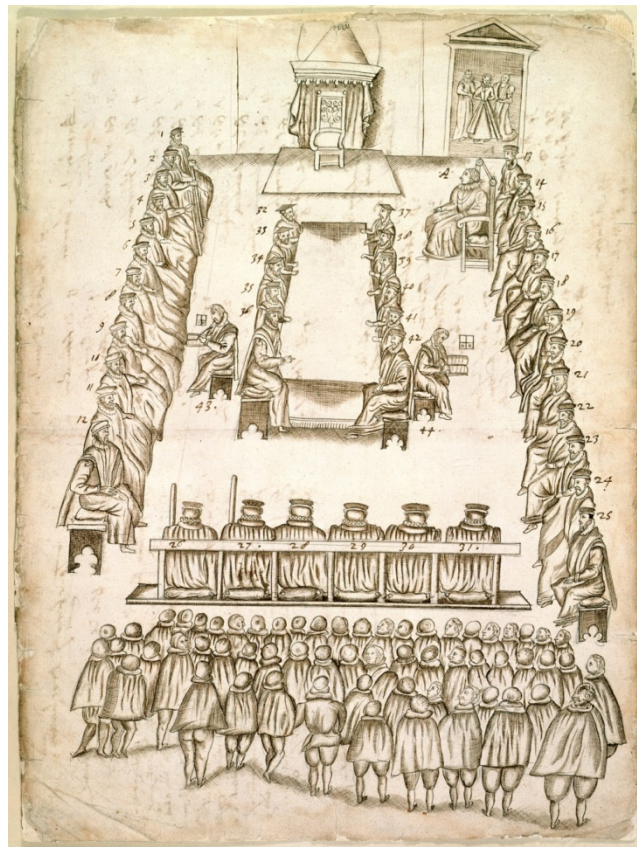 1
2
3
4
5
6
7
8
9
10
11
12
A
13
14
15
16
17
18
19
20
21
22
23
24
25
32
33
34
35
36
37
38
39
40
41
42
43.
44.
26 27. 28 29 30 31.